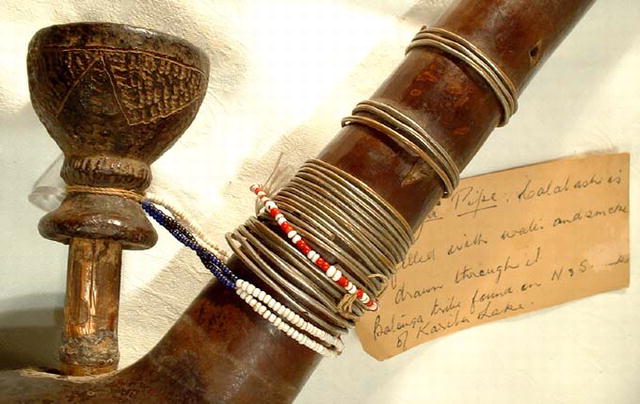 Pipe. Calabash is
lled with water and smoke
drawn through it
Batonga tribe found on N & S.
of Kariba Lake.